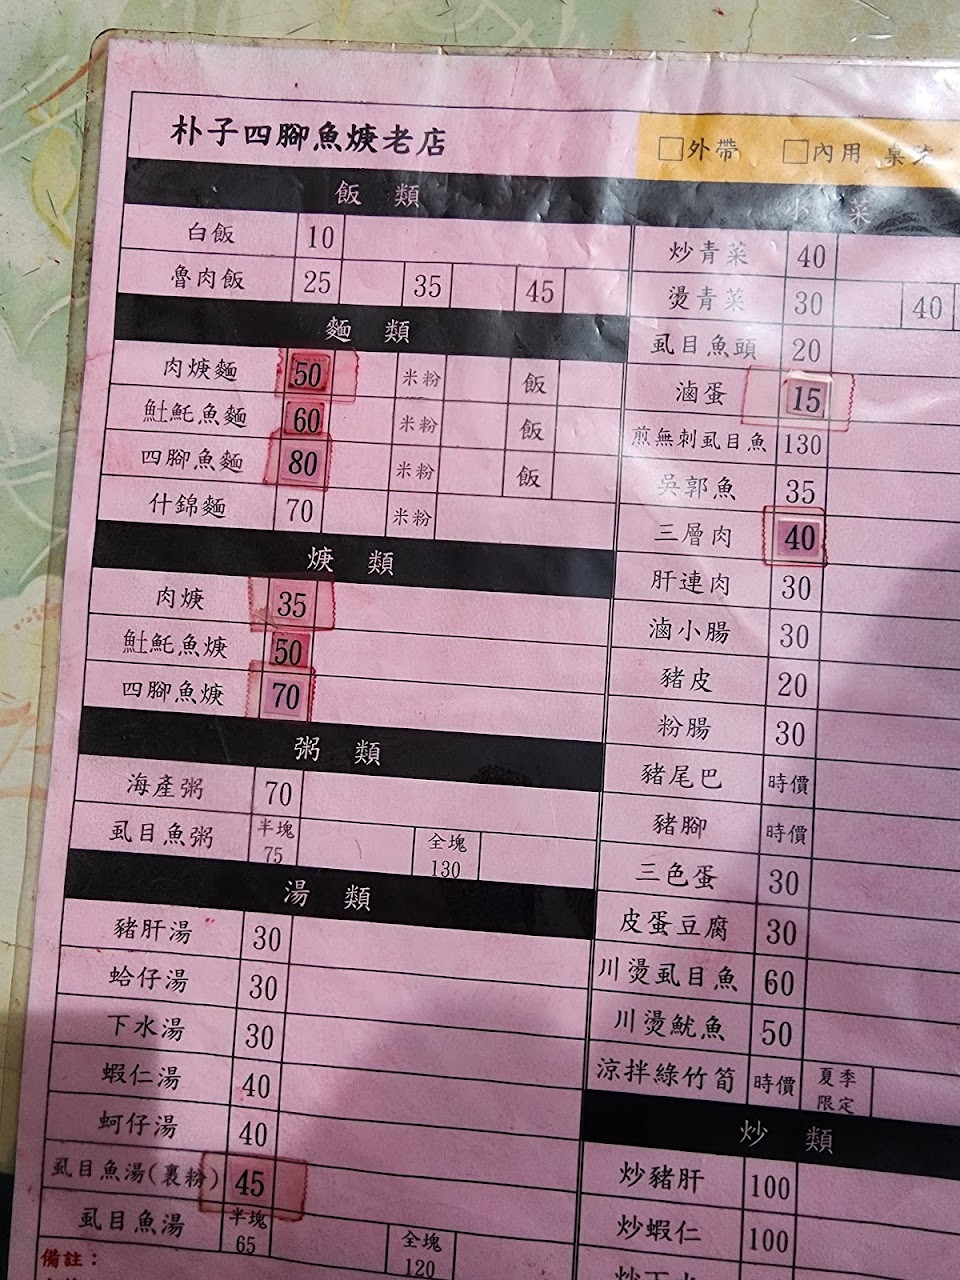 朴子四腳魚焿老店
□外帶 □內用
飯 類
白飯 10
魯肉飯 25 35 45
麵 類
肉焿麵 50 米粉 飯
𩵚魠魚麵 60 米粉 飯
四腳魚麵 80 米粉 飯
什錦麵 70 米粉
焿 類
肉焿 35
𩵚魠魚焿 50
四腳魚焿 70
粥 類
海產粥 70
虱目魚粥 半塊 75 全塊 130
湯 類
豬肝湯 30
蛤仔湯 30
下水湯 30
蝦仁湯 40
蚵仔湯 40
虱目魚湯(裹粉) 45
虱目魚湯 半塊 65 全塊 120
備註：
小 菜
炒青菜 40
燙青菜 30 40
虱目魚頭 20
滷蛋 15
煎無刺虱目魚 130
吳郭魚 35
三層肉 40
肝連肉 30
滷小腸 30
豬皮 20
粉腸 30
豬尾巴 時價
豬腳 時價
三色蛋 30
皮蛋豆腐 30
川燙虱目魚 60
川燙魷魚 50
涼拌綠竹筍 時價 夏季限定
炒 類
炒豬肝 100
炒蝦仁 100